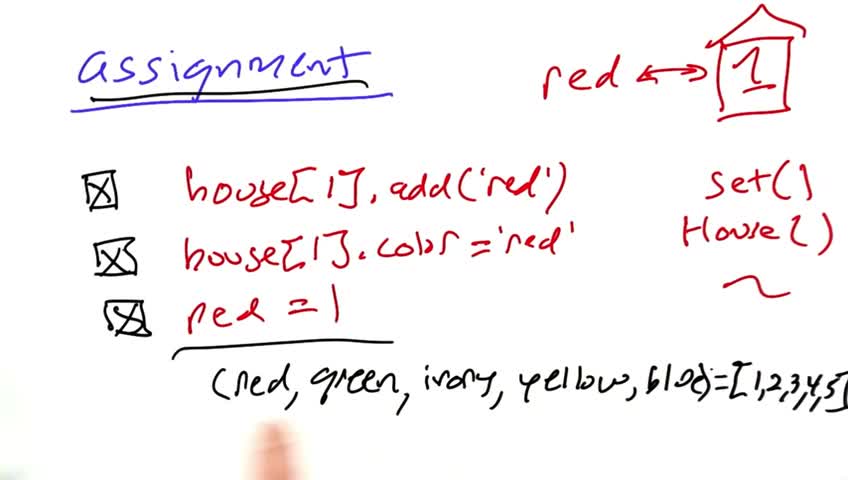 assignment
red ↔ 1
house[1].add('red')
set()
house[1].color='red'
House()
red = 1
(red, green, ivory, yellow, blue)=[1,2,3,4,5]